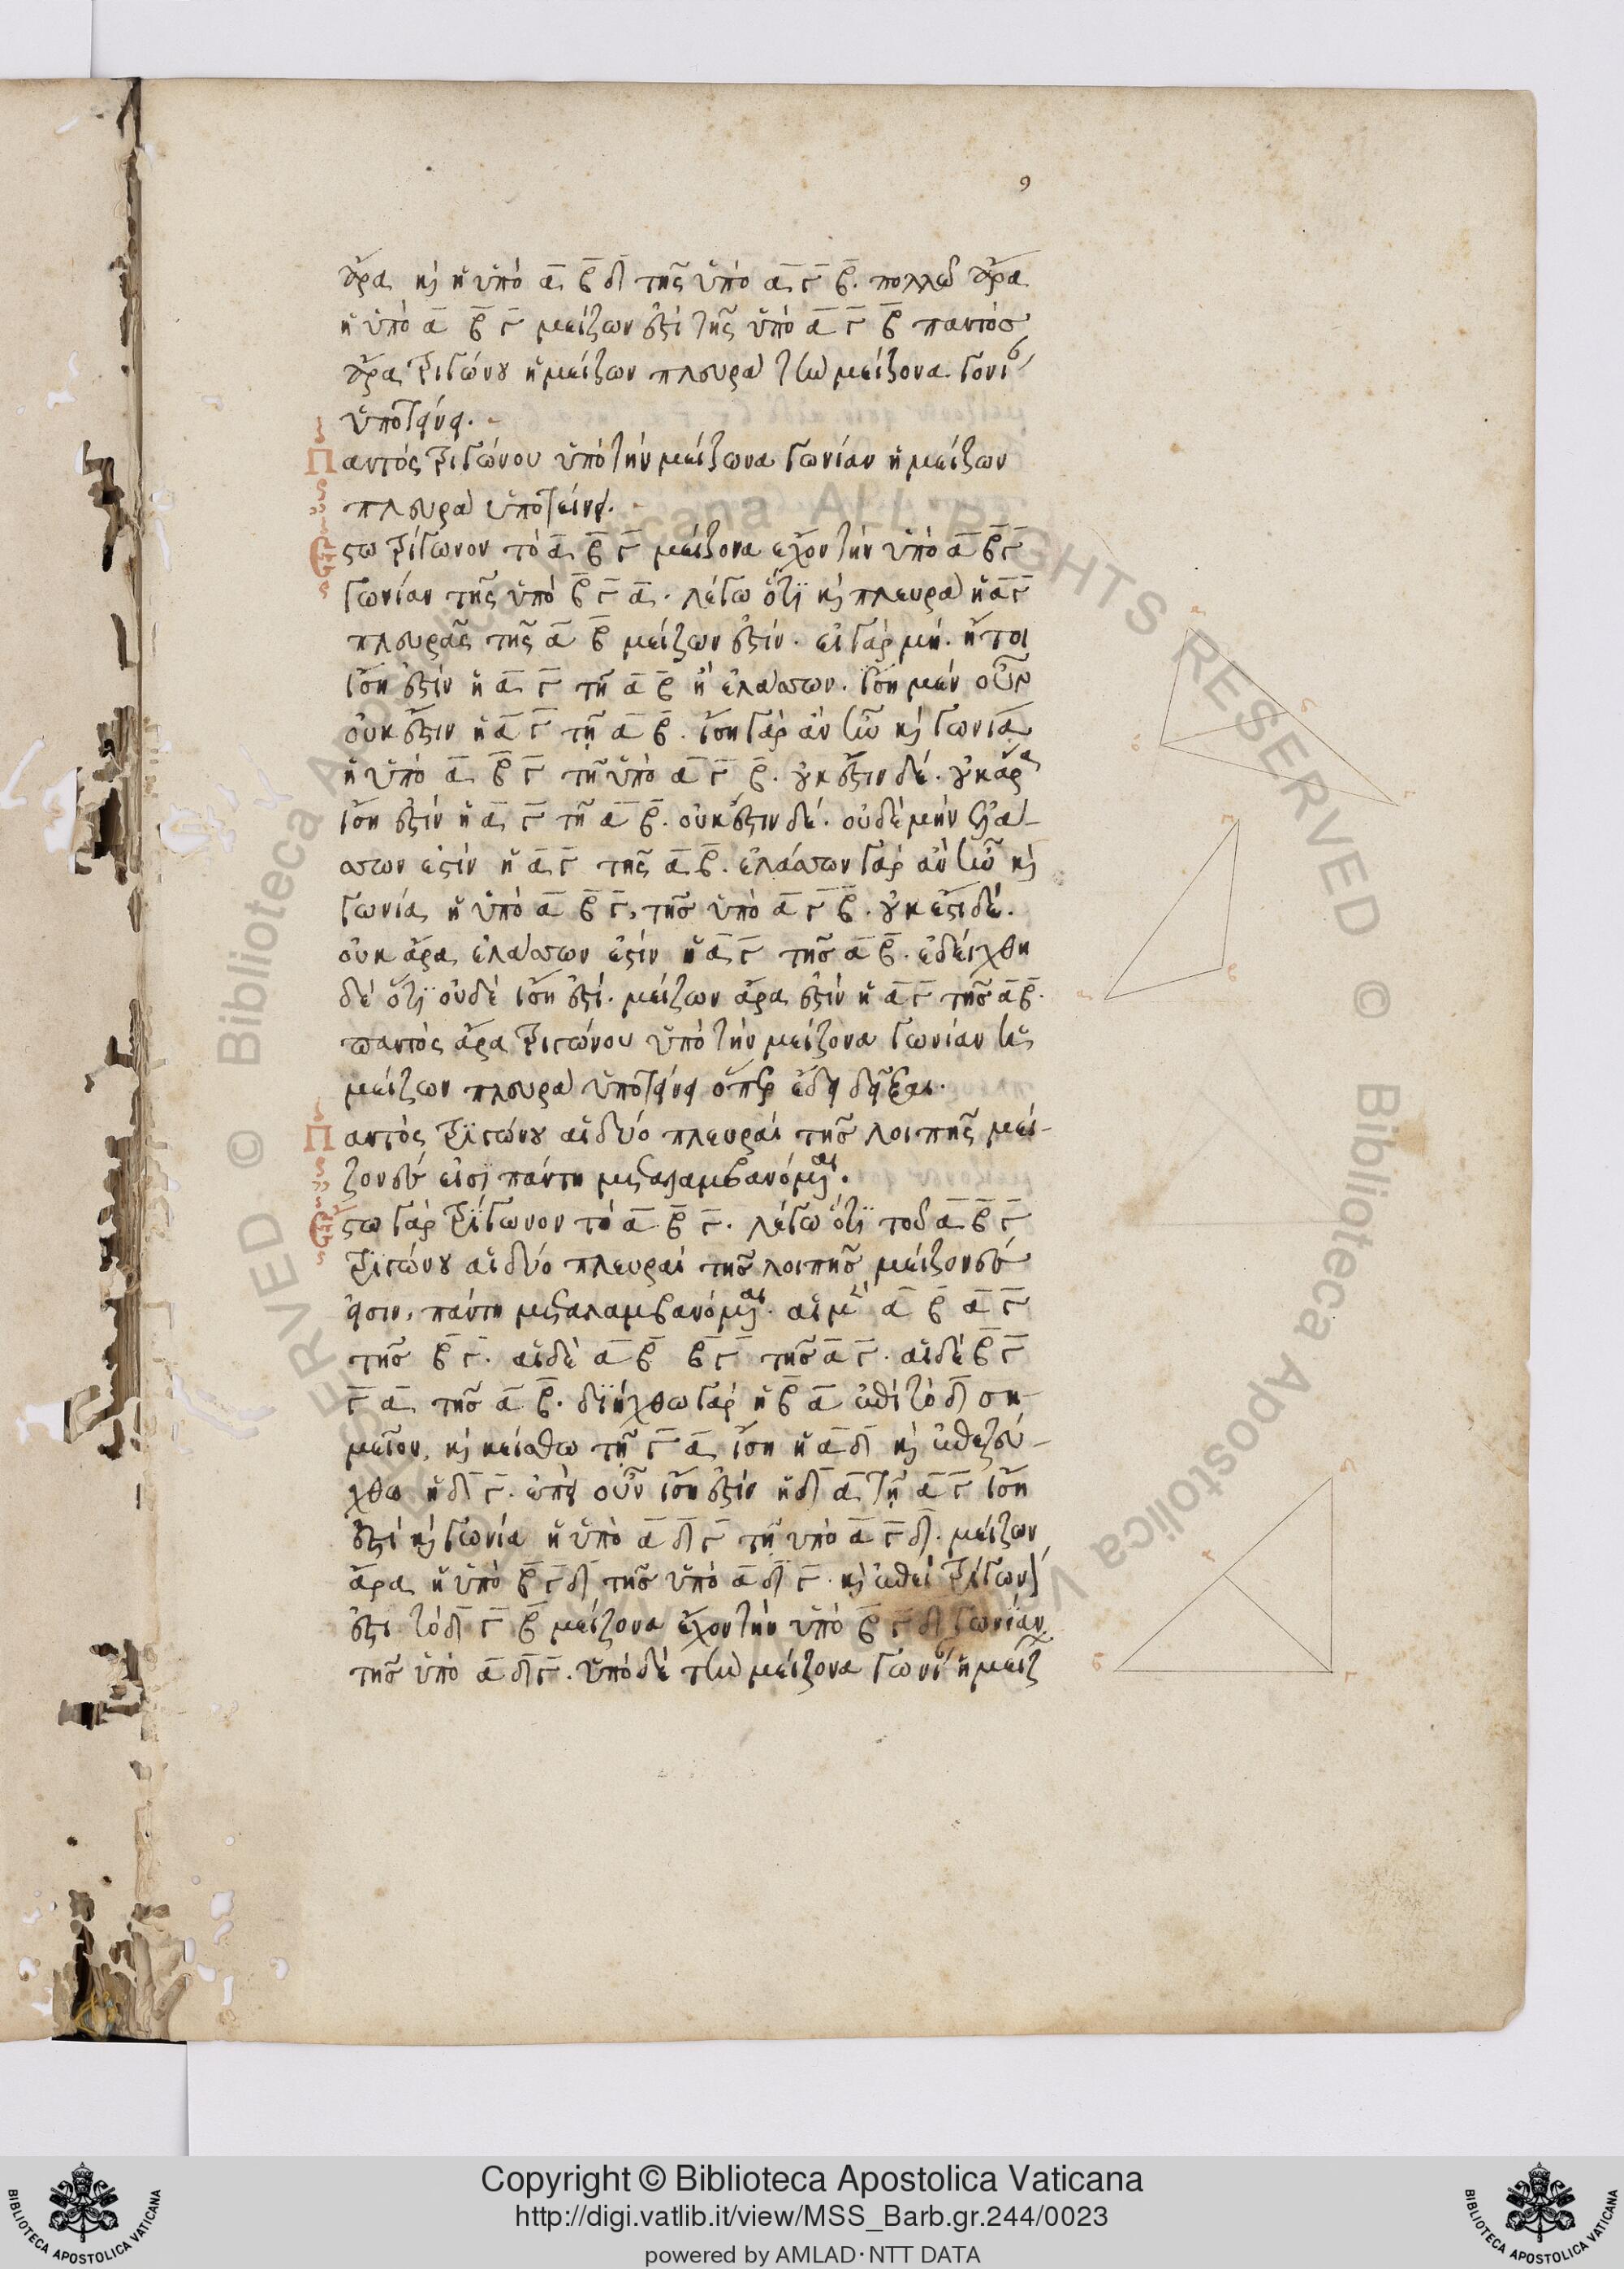 9
ἄρα καὶ ἡ ὑπὸ α β δ τῆς ὑπὸ α γ β. πολλῶ ἄρα
ἡ ὑπὸ α β γ μείζων ἐστὶ τῆς ὑπὸ α γ β παντὸσ
ἄρα τριγώνου ἡ μείζων πλευρὰ τὴν μείζονα γονί
ὑποτείνει.
Παντὸς τριγώνου ὑπὸ τὴν μείζωνα γωνίαν ἡ μείζων
πλευρὰ ὑποτείνει.
Ἔστω τρίγωνον τὸ α β γ μείζονα ἔχον τὴν ὑπὸ α β γ
γωνίαν τῆς ὑπὸ β γ α. λέγω ὅτι καὶ πλευρὰ ἡ α γ
πλευρᾶς τῆς α β μείζων ἐστίν. εἰ γὰρ μή. ἤτοι
ἴση ἐστὶν ἡ α γ τῆ α β ἢ ἐλάσσων. ἴση μὲν οὖν
οὐκ ἔστιν ἡ α γ τῇ α β. ἴση γὰρ ἂν ἦν καὶ γωνία
ἡ ὑπὸ α β γ τῆ ὑπὸ α γ β. οὐκ ἔστιν δέ. οὐκ ἄρα
ἴση ἐστὶν ἡ α γ τῆ α β. οὐκ ἔστιν δέ. οὐδὲ μὴν ἐλά-
σσων ἐστὶν ἡ α γ τῆς α β. ἐλάσσων γὰρ ἂν ἦν καὶ
γωνία ἡ ὑπὸ α β γ, τῆσ ὑπὸ α γ β. οὐκ ἔστι δέ.
οὐκ ἄρα ἐλάσσων ἐστὶν ἡ α γ τῆσ α β. ἐδείχθη
δὲ ὅτι οὐδὲ ἴση ἐστί. μείζων ἄρα ἐστὶν ἡ α γ τῆσ α β.
παντὸς ἄρα τριγώνου ὑπὸ τὴν μείζονα γωνίαν ἡ
μείζων πλευρὰ ὑποτείνει ὅπερ ἔδει δεῖξαι.
Παντὸς τριγώνου αἱ δύο πλευραὶ τῆσ λοιπῆς μεί-
ζονές εἰσι πάντη μεταλαμβανόμεναι.
Ἔστω γὰρ τρίγωνον τὸ α β γ. λέγω ὅτι τοῦ α β γ
τριγώνου αἱ δύο πλευραὶ τῆσ λοιπῆσ μείζονές
εἰσιν, πάντη μεταλαμβανόμεναι. αἱ μὲν α β α γ
τῆσ β γ. αἱ δὲ α β β γ τῆσ α γ. αἱ δὲ β γ
γ α τῆσ α β. διήχθω γὰρ ἡ β α ἐπὶ τὸ δ ση-
μεῖον, καὶ κείσθω τῇ γ α ἴση ἡ α δ καὶ ἐπεζεύ-
χθω ἡ δ γ. ἐπεὶ οὖν ἴση ἐστὶν ἡ δ α τῇ α γ ἴση
ἐστὶ καὶ γωνία ἡ ὑπὸ α δ γ τῇ ὑπὸ α γ δ. μείζων
ἄρα ἡ ὑπὸ β γ δ τῆσ ὑπὸ α δ γ. καὶ ἐπεὶ τρίγωνόν
ἐστι τὸ δ γ β μείζονα ἔχον τὴν ὑπὸ β γ δ γωνίαν
τῆσ ὑπὸ α δ γ. ὑπὸ δὲ τὴν μείζονα γωνί ἡ μείζ
Copyright © Biblioteca Apostolica Vaticana
http://digi.vatlib.it/view/MSS_Barb.gr.244/0023
powered by AMLAD·NTT DATA